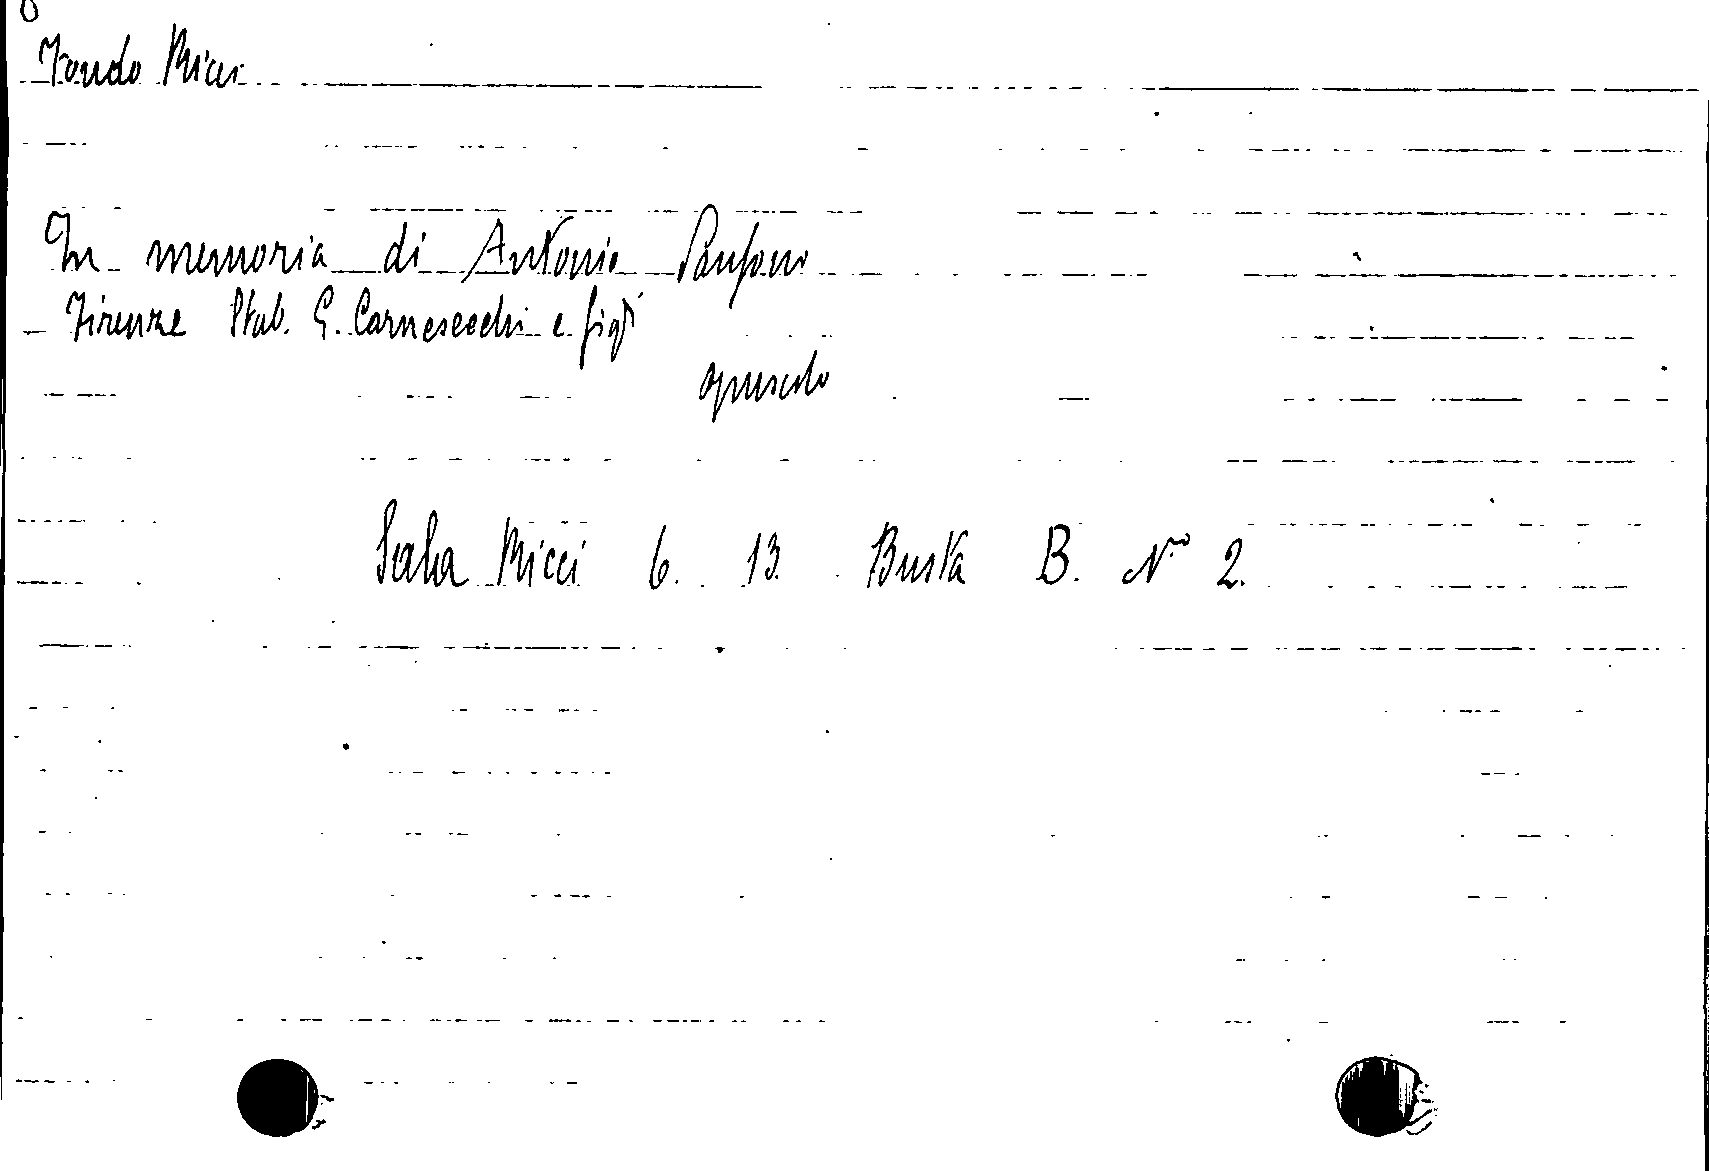 Fondo Ricci
In memoria di Antonio
Firenze Stab. G. Carnesecchi e figli
opuscolo
Sala Ricci 6. 13. Busta B. No 2.